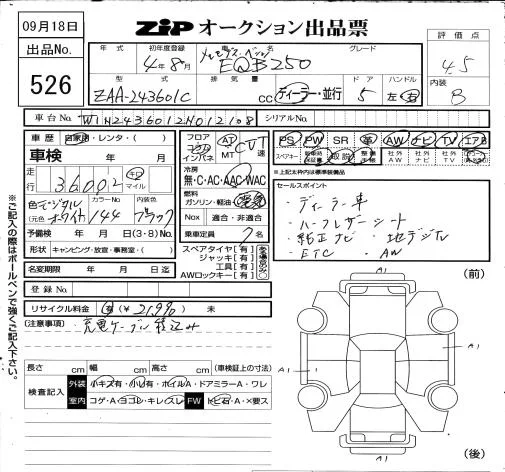 09月18日
ZiP オークション出品票
出品No.
526
年式 初年度登録 車名 グレード
4年8月 メルセデス・ベンツ EQB250
評価点
4.5
内装
B
型式 排気量 ドア ハンドル
ZAA-243601C cc ディーラー・並行 5 左・右
車台No. W1N2436012N012108 シリアルNo.
車歴 自家用・レンタ・( )
車検 年 月
走行 36002 キロ マイル
色 デジタルホワイト (元色 ) カラーNo. 144 内装色 ブラック
予備検 年 月 日(3・8)No.
形状 キャンピング・放宣・事務室・( )
名変期限 年 月 日迄
登録No.
フロア コラム インパネ AT MT CVT 速
冷房 無・C・AC・AAC・WAC
燃料 ガソリン・軽油・電気
Nox 適合・非適合
乗車定員 7名
スペアタイヤ[有]
ジャッキ[有]
工具[有]
AWロックキー[有]
PS PW SR 革 AW ナビ TV エアB
スペアキー 取説 社外AW 社外ナビ 社外TV
*上記太枠内は標準装備品
セールスポイント
・ディーラー車
・ハーフレザーシート
・純正ナビ ・地デジTV
・ETC ・AW
リサイクル料金 有(¥21,990) 未
(注意事項) ・充電ケーブル積込み
※ご記入の際はボールペンで強くご記入下さい。
長さ cm 幅 cm 高さ cm (車検証上の寸法)
検査記入
外装 小キズ有・小凹有・ホイルA・ドアミラーA・ワレ
室内 コゲ・A・ヨゴレ・キレ・スレ FW トビ石・A・×要ス
(前)
A1
A1
A1
A1
(後)